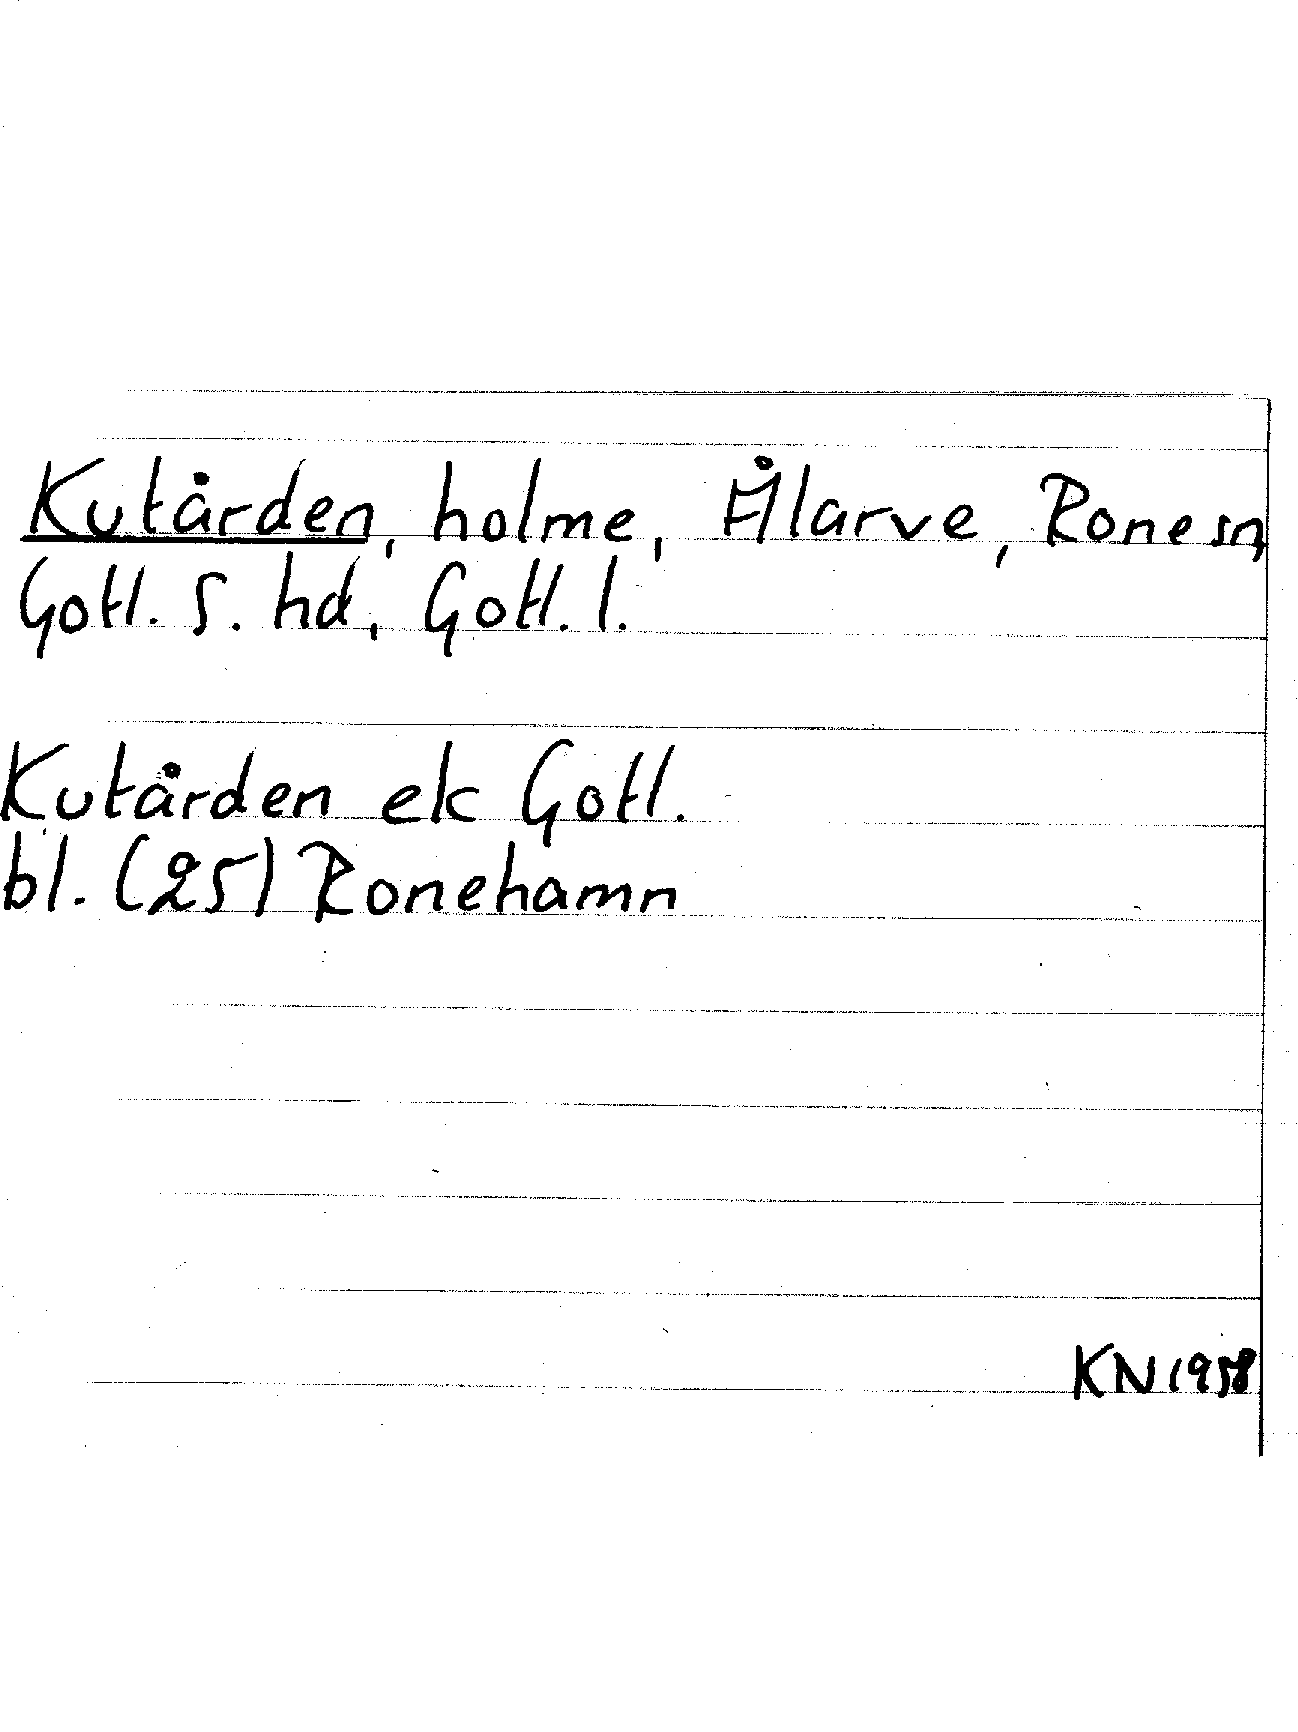 Kutården, holme, Ålarve, Rone sn,
Gotl. S. hd, Gotl. l.
Kutården ek Gotl.
bl. (25) Ronehamn
KN 1958